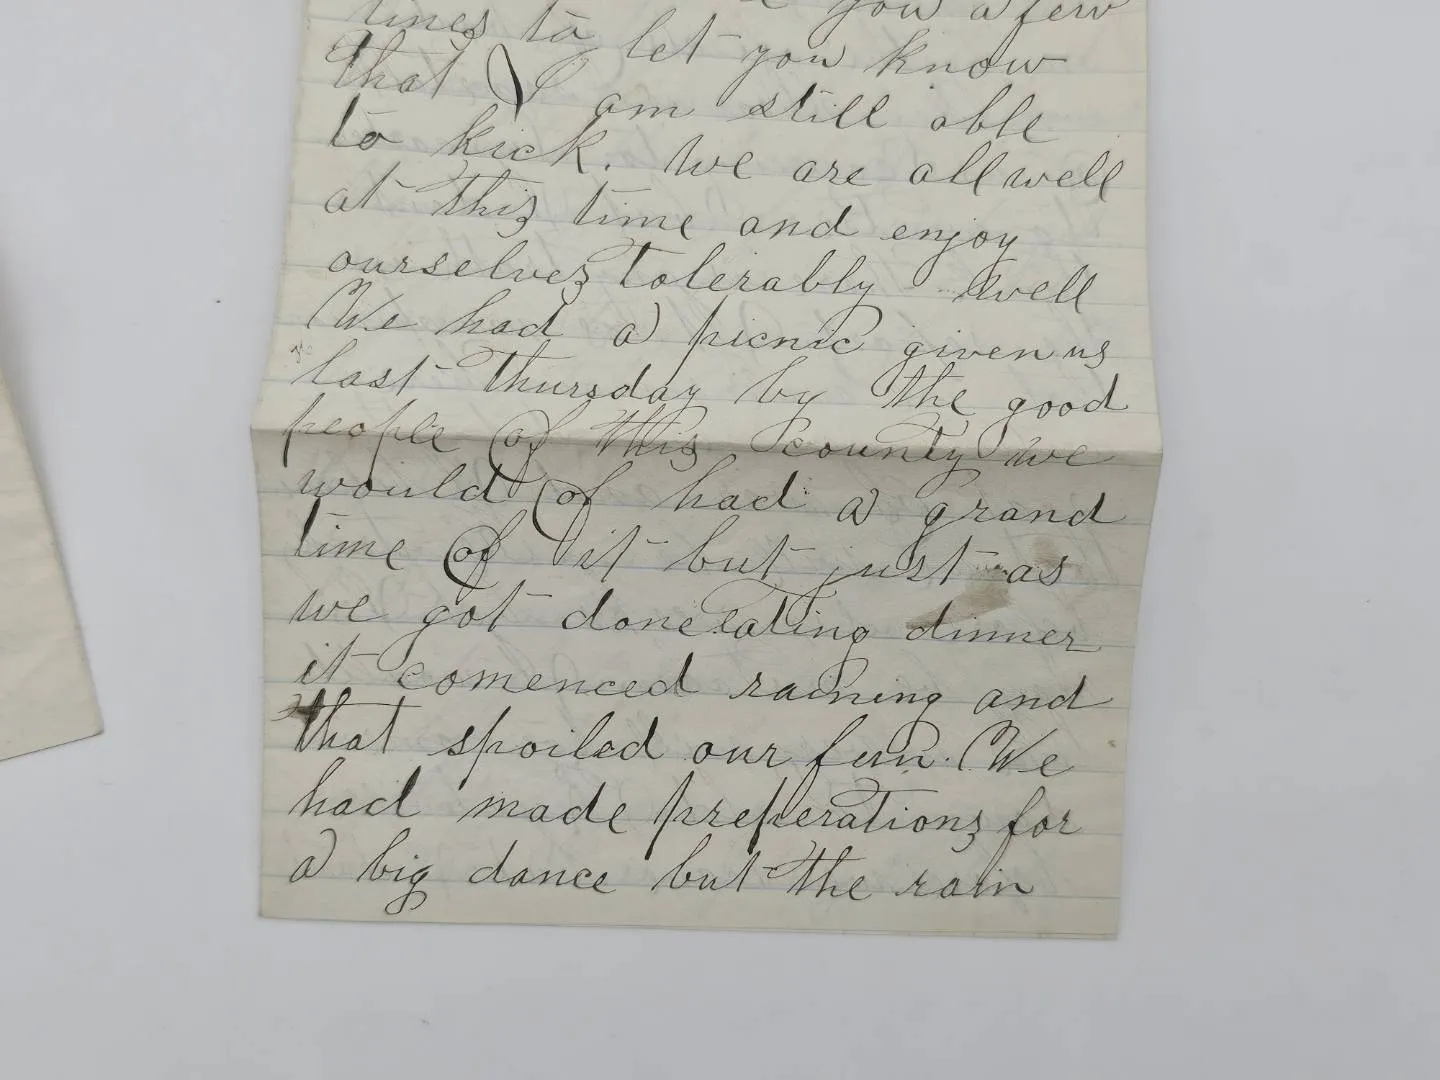 you a few
lines to let you know
that I am still able
to kick. We are all well
at this time and enjoy
ourselves tolerably well
We had a picnic given us
last Thursday by the good
people of this county we
would of had a grand
time of it but just as
we got done eating dinner
it comenced raining and
that spoiled our fun. We
had made preperations for
a big dance but the rain